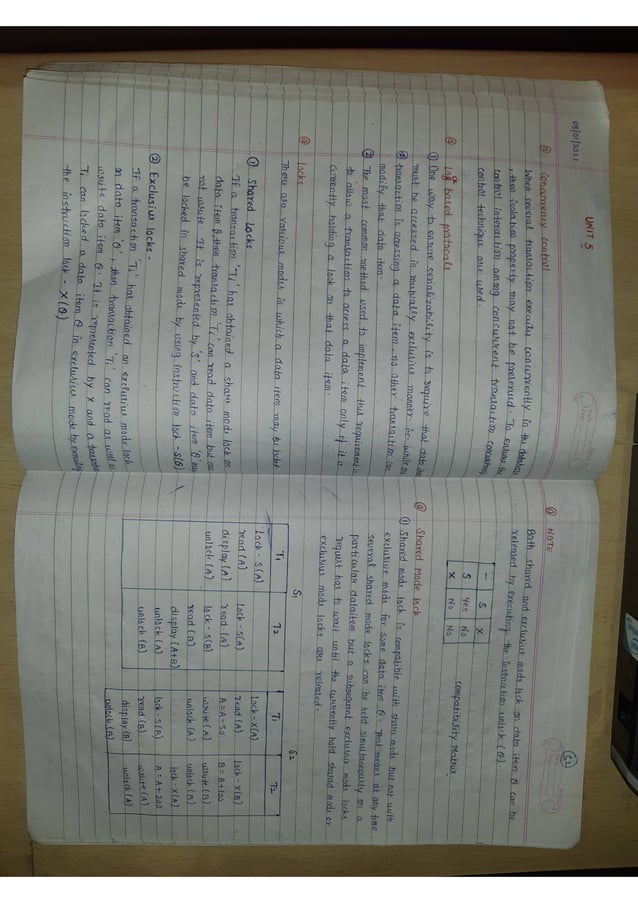 08/01/2023
UNIT 5
@ Concurrency control
When several transaction execute concurrently in the database
, then isolation property may not be preserved. To ensure the
control interaction among concurrent transaction concurrency
control technique are used.
@ Lock based protocals
① One way to ensure serializability is to require that data item
must be accessed in mutually exclusive manner i.e. while one
transaction is acessing a data item no other transaction can
modify that data item.
② The most common method used to implement this requirement is
to allow a transaction to access a data item only if it is
currently holding a lock on that data item.
@ Locks
There are various modes in which a data item may be locked
① Shared Locks:
If a transaction 'Ti' has obtained a share mode lock on
data item Q then transaction 'Ti' can read data item but can
not write. It is represented by 's' and data item 'Q' may
be locked in shared mode by using instruction lock-S(Q)
② Exclusive locks -
If a transaction 'Ti' has obtained an exclusive mode lock
on data item 'Q', then transaction 'Ti' can read as well as
write data item Q. It is represented by X and a transaction
Ti can locked a data item Q in exclusive mode by executing
the instruction lock - X(Q)
@ NOTE
Both shared and exclusive mode lock on data item Q can be
released by executing the instruction unlock (Q)
- S X
S Yes No
X No No
Compatibility Matrix
@ Shared Mode lock
① Shared mode lock is compatible with share mode but not with
exclusive mode for same data item Q. That means at any time
several shared mode locks can be held simultaneously on a
particular dataitem but a subsequent exclusive mode locks
request has to wait until the currently held shared mode or
exclusive mode locks are released.
S1
T1 T2
Lock - S(A)
read (A)
display (A)
unlock (A)
lock - S(A)
read (A)
lock - S(B)
read (B)
display (A+B)
unlock (A)
unlock (B)
S2
T1 T2
Lock - X(A)
read (A)
A = A - 50
write (A)
unlock (A)
lock - S(B)
read (B)
display (B)
unlock (B)
Lock - X(B)
B = B + 100
write (B)
unlock (B)
lock - X(A)
A = A + 200
write (A)
unlock (A)